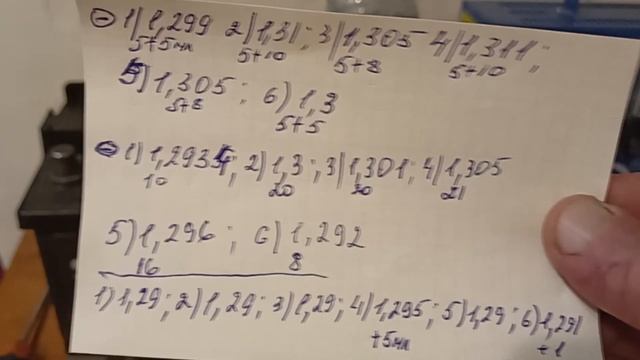 ⊖ 1) 1,299 2) 1,31 ; 3) 1,305 4) 1,311 ;
5+5мл 5+10 5+8 5+10
5) 1,305 ; 6) 1,3
5+8 5+5
1) 1,293 ; 2) 1,3 ; 3) 1,301 ; 4) 1,305
10 20 21
5) 1,296 ; 6) 1,292
16 8
1) 1,29 ; 2) 1,29 ; 3) 1,29 ; 4) 1,295 ; 5) 1,29 ; 6) 1,291
+5мл +1